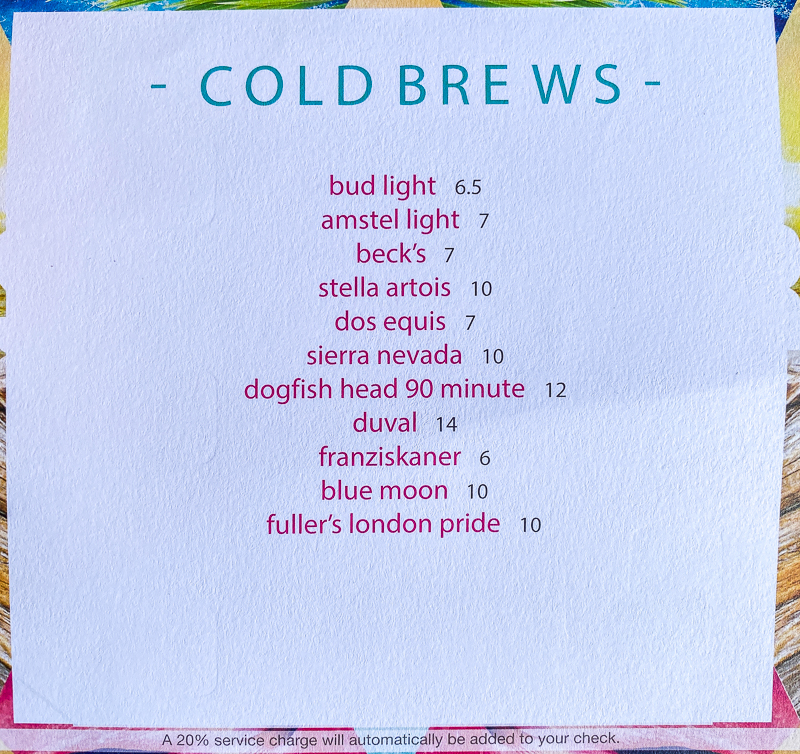 - COLD BREWS -
bud light 6.5
amstel light 7
beck's 7
stella artois 10
dos equis 7
sierra nevada 10
dogfish head 90 minute 12
duval 14
franziskaner 6
blue moon 10
fuller's london pride 10
A 20% service charge will automatically be added to your check.